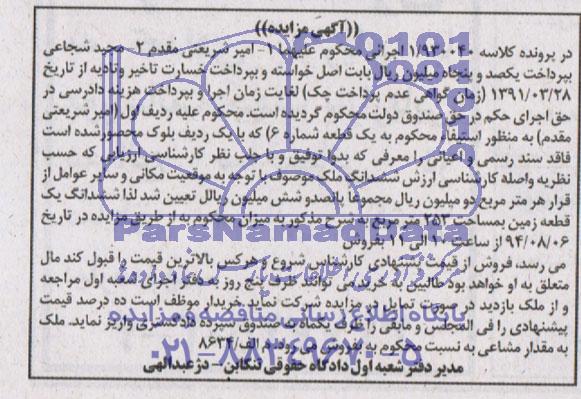 ((آگهی مزایده))
در پرونده کلاسه ۱/۹۳۰۰۴۰ اجرائی محکوم علیهما ۱- امیر شریعتی مقدم ۲- مجید شجاعی
بپرداخت یکصد و پنجاه میلیون ریال بابت اصل خواسته و بپرداخت خسارت تاخیر وتادیه از تاریخ
۱۳۹۱/۰۳/۲۸ (زمان گواهی عدم پرداخت چک) لغایت زمان اجرا و پرداخت هزینه دادرسی در
حق اجرای حکم در حق صندوق دولت محکوم گردیده است. محکوم علیه ردیف اول (امیر شریعتی
مقدم) به منظور استیفاء محکوم به یک قطعه شماره ۶) که با یک ردیف بلوک محصور شده است
فاقد سند رسمی و اعیانی را معرفی که بدوا توقیف و با جلب نظر کارشناسی ارزیابی که حسب
نظریه واصلهٔ کارشناسی ارزش ششدانگ ملک موصوف با توجه به موقعیت مکانی و سایر عوامل از
قرار هر متر مربع دو میلیون ریال مجموعا پانصدو شش میلیون ریالل تعیین شد لذا ششدانگ یک
قطعه زمین بمساحت ۲۵۳ متر مربع به شرح مذکور به میزان محکوم به از طریق مزایده در تاریخ
۹۴/۰۸/۰۶ از ساعت ۱۰ الی ۱۱ بفروش
می رسد، فروش از قیمت پیشنهادی کارشناس شروع و هرکس بالاترین قیمت را قبول کند مال
متعلق به او خواهد بود طالبین به خرید می توانند ظرف پنج روز به دفتر اجرای شعبه اول مراجعه
و از ملک بازدید در صورت تمایل در مزایده شرکت نماید. خریدار موظف است ده درصد قیمت
پیشنهادی را فی المجلس و مابقی را ظرف یکماه به صندوق سپرده دادگستری واریز نماید. ملک
به مقدار مشاعی به نسبت محکوم به بفروش می رود. م الف/۸۶۳۴
مدیر دفتر شعبه اول دادگاه حقوقی تنکابن - دژعبدالهی
ParsNamadData
پایگاه اطلاع رسانی مناقصه و مزایده
۰۲۱-۸۸۳۴۹۶۷۰-۵